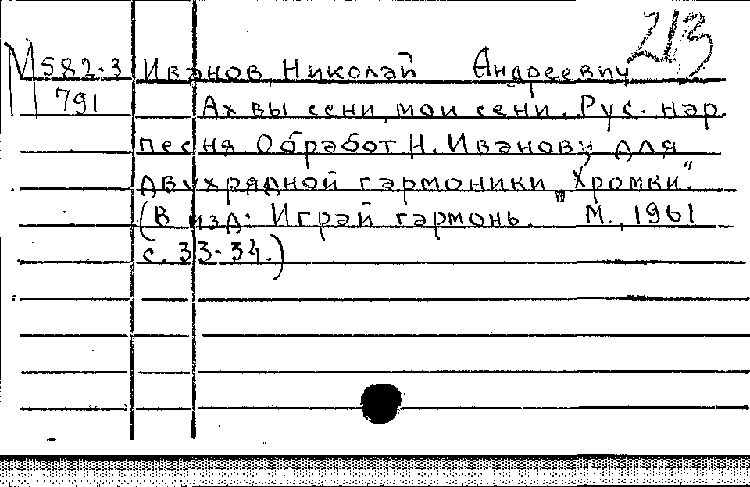 213
М 582-3 Иванов Николай Андреевич
791 Ах вы сени, мои сени. Рус. нар.
песня Обработ Н. Иванову для
двухрядной гармоники „Хромки."
(В изд: Играй гармонь. М., 1961
с. 33-34.)